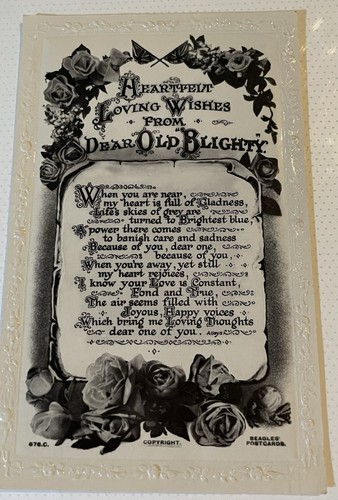 Heartfelt
Loving Wishes
From
Dear Old "Blighty"
When you are near,
my heart is full of Gladness,
Life's skies of grey are
turned to Brightest blue,
A power there comes
to banish care and sadness
Because of you, dear one,
because of you,
When you're away, yet still
my heart rejoices,
I know your Love is Constant,
Fond and True,
The air seems filled with
Joyous, Happy voices
Which bring me Loving Thoughts
dear one of you.
676.C.
COPYRIGHT.
BEAGLES'
POSTCARDS.